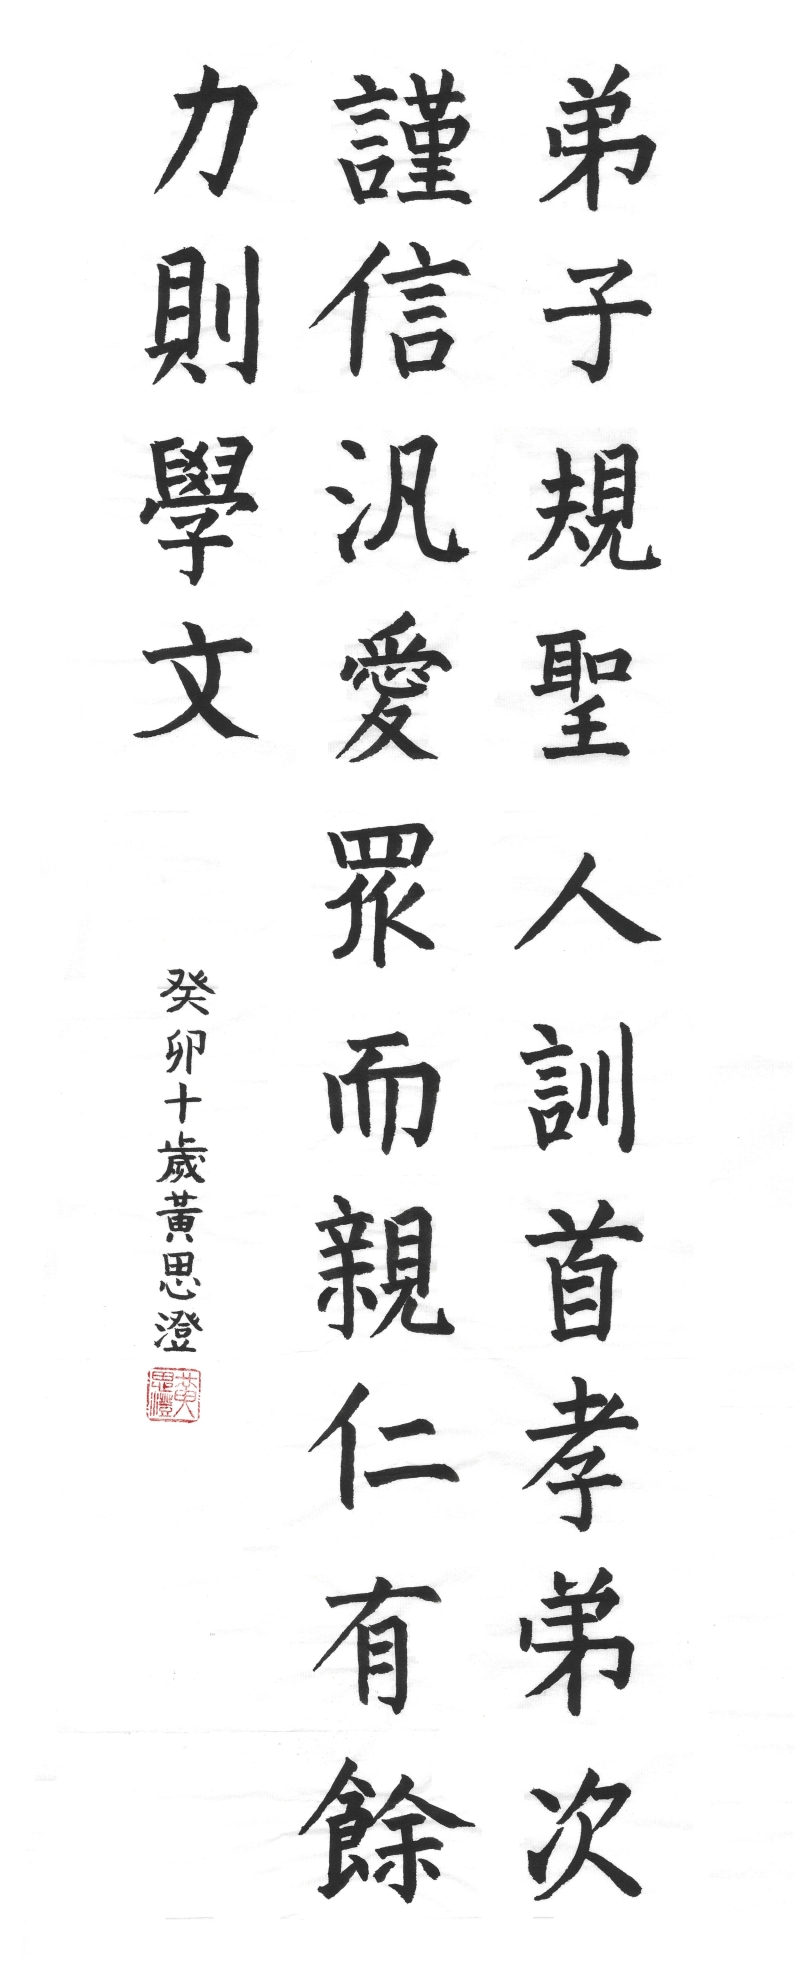 弟子規聖人訓首孝弟次
謹信汎愛眾而親仁有餘
力則學文
癸卯十歲黃思澄
黃思澄